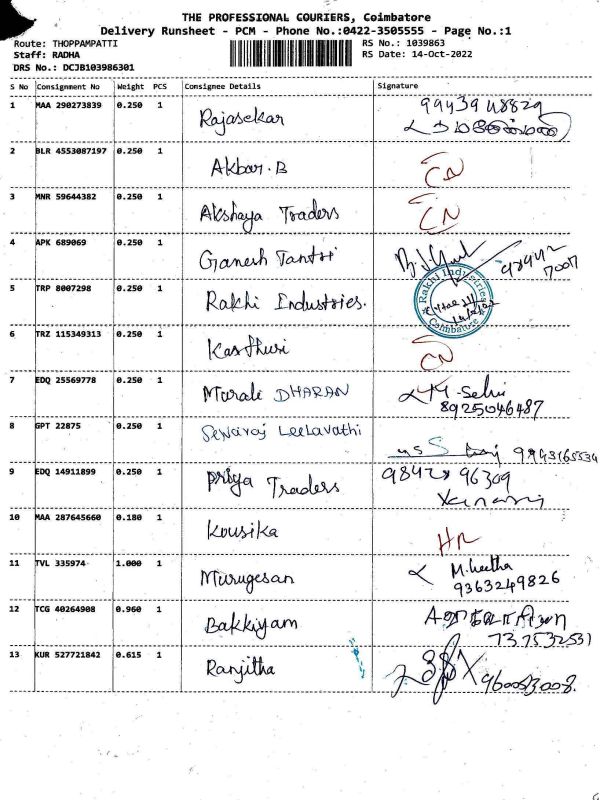 THE PROFESSIONAL COURIERS, Coimbatore
Delivery Runsheet - PCM - Phone No.:0422-3505555 - Page No.:1
Route: THOPPAMPATTI
RS No.: 1039863
Staff: RADHA
RS Date: 14-Oct-2022
DRS No.: DCJB103986301
S No Consignment No Weight PCS Consignee Details Signature
1 MAA 290273839 0.250 1 Rajasekar
2 BLR 4553087197 0.250 1 Akbar.B CN
3 MNR 59644382 0.250 1 Akshaya Traders CN
4 APK 689069 0.250 1 Ganesh Tantri
5 TRP 8007298 0.250 1 Rakhi Industries.
Rakhi Industries
Coimbatore
6 TRZ 115349313 0.250 1 Kasthuri CN
7 EDQ 25569778 0.250 1 Murali DHARAN M-Selvi
8925046487
8 GPT 22875 0.250 1 Selvaraj Leelavathi
9943165534
9 EDQ 14911899 0.250 1 Priya Traders 98427 96309
10 MAA 287645660 0.180 1 Kousika
11 TVL 335974 1.000 1 Murugesan M.Geetha
9363249826
12 TCG 40264908 0.960 1 Bakkiyam
13 KUR 527721842 0.615 1 Ranjitha